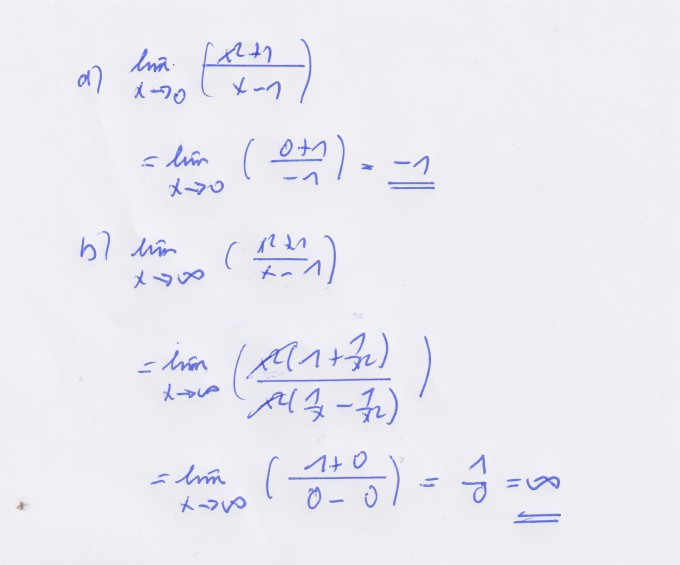 a) lim x→0 (x²+1 / x-1)
= lim x→0 (0+1 / -1) = -1
b) lim x→∞ (x²+1 / x-1)
= lim x→∞ (x²(1 + 1/x²) / x²(1/x - 1/x²))
= lim x→∞ (1+0 / 0-0) = 1/0 = ∞